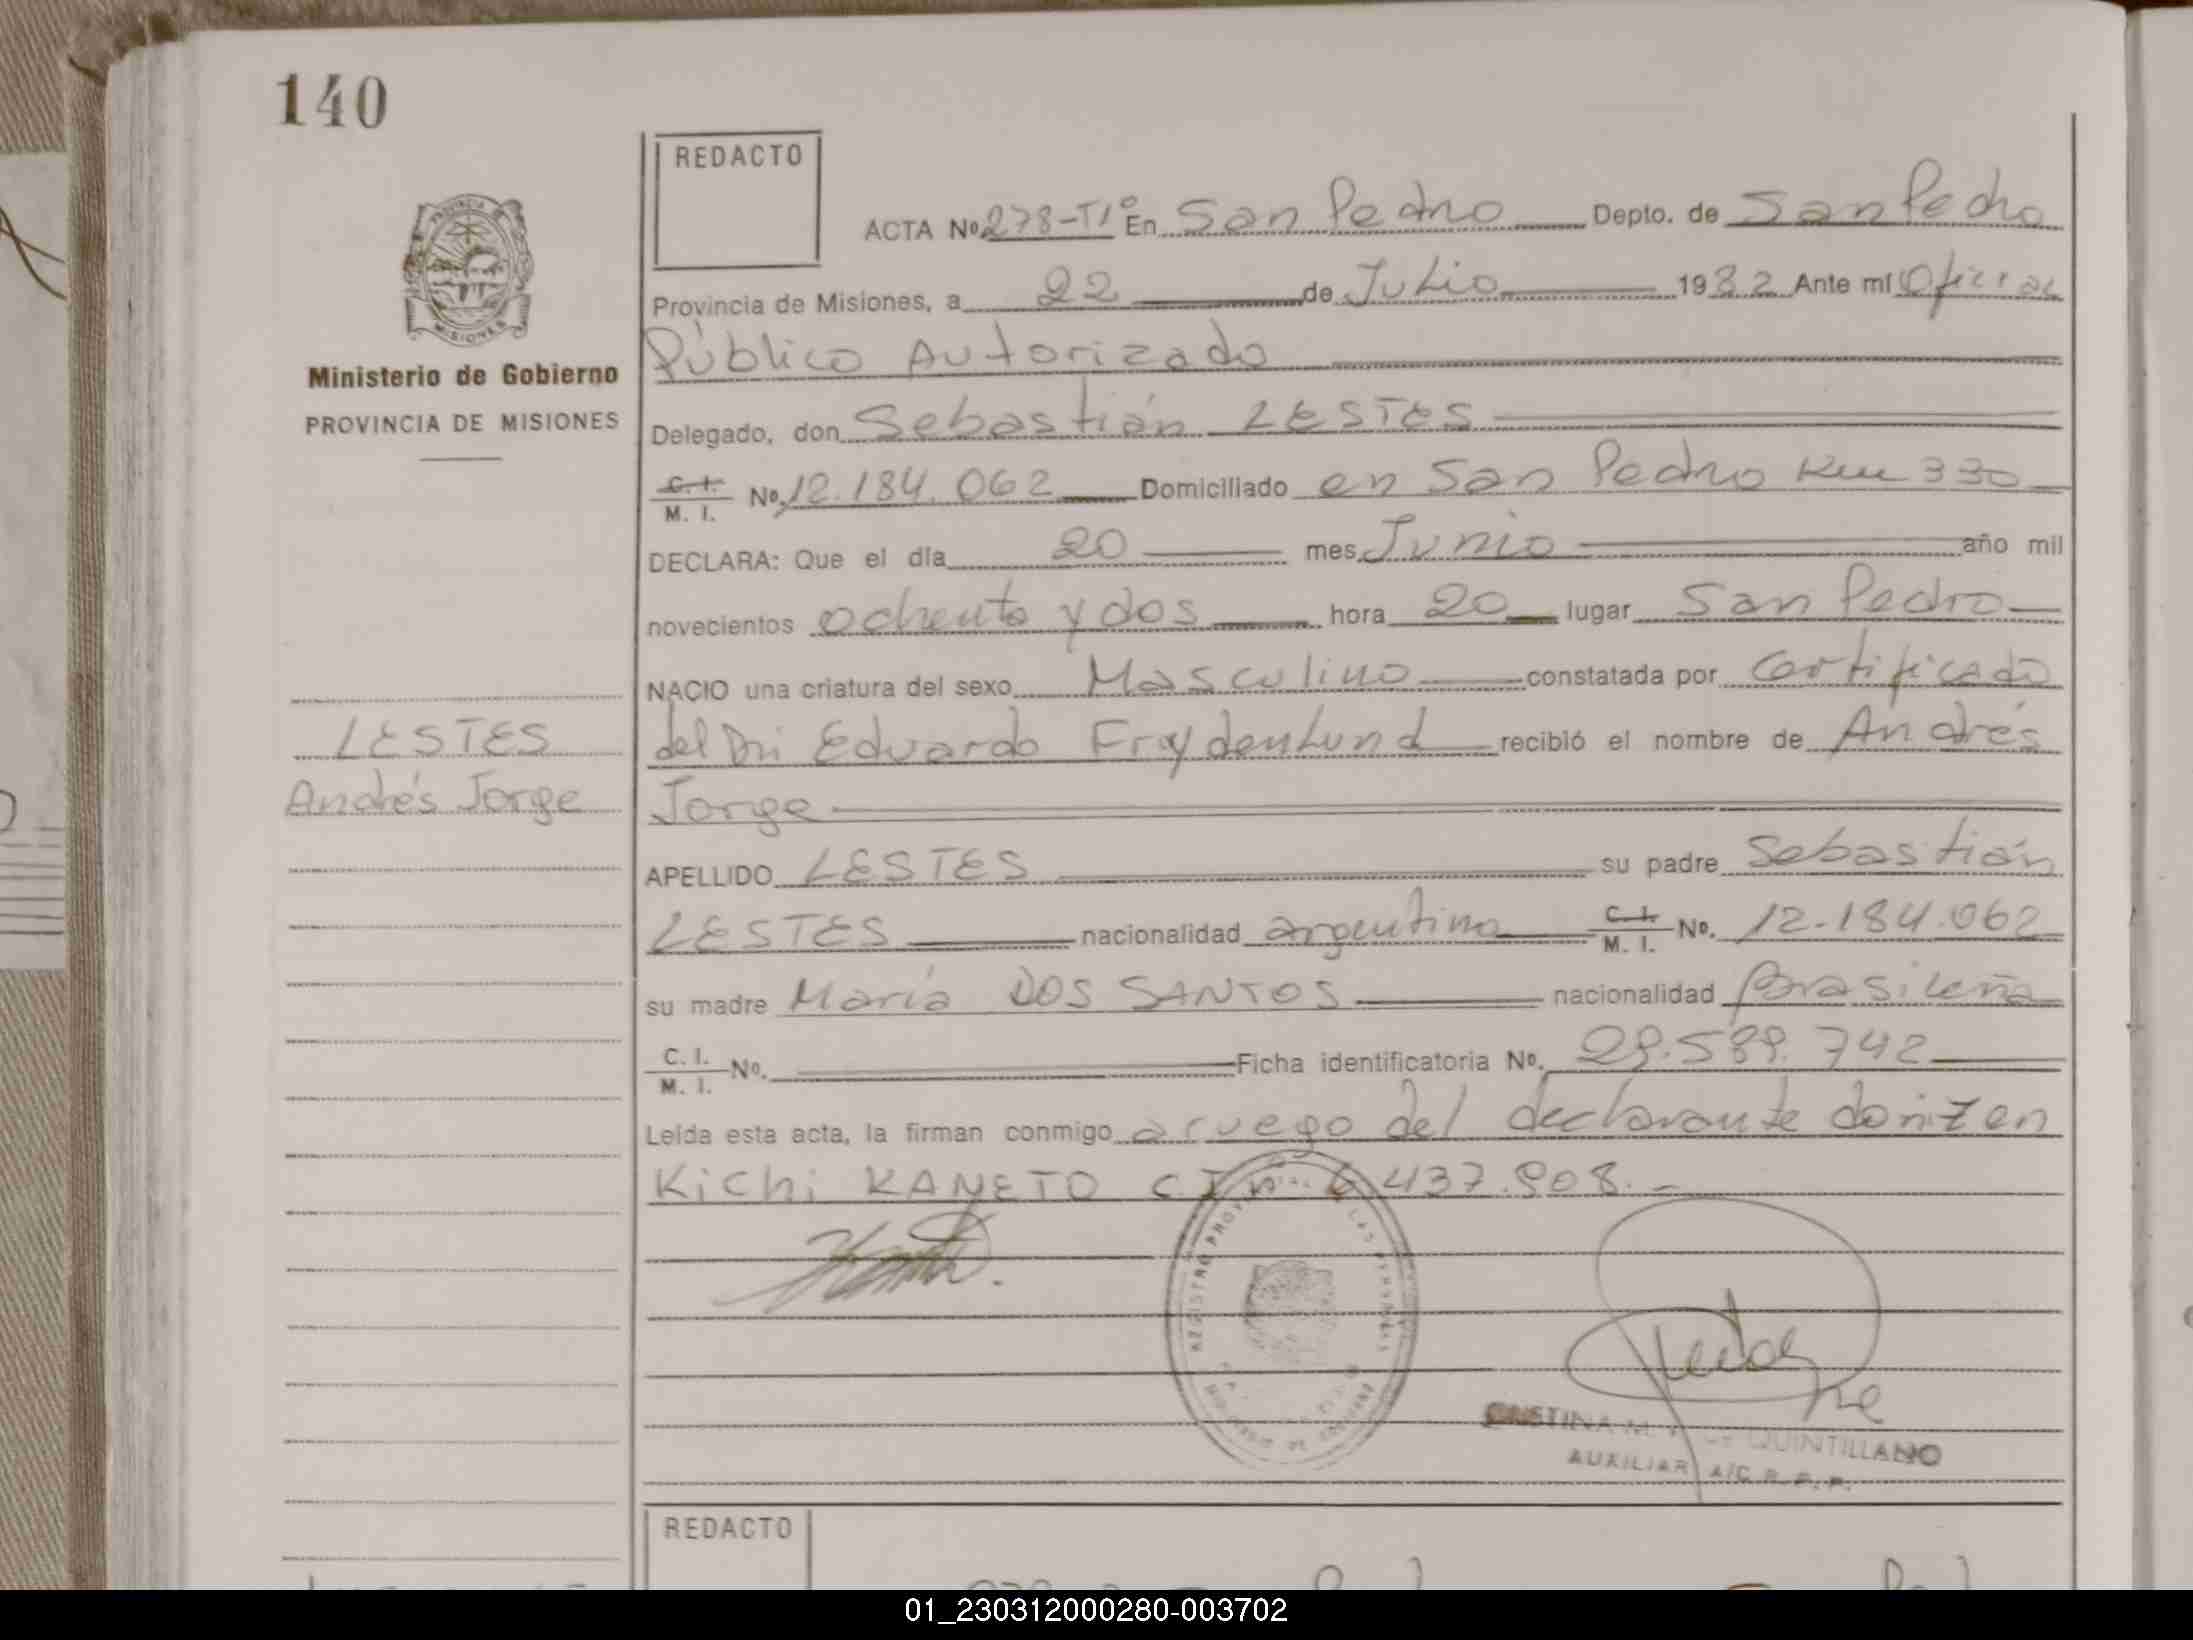 140
REDACTO
ACTA Nº 278-Tº En San Pedro Depto. de San Pedro
Provincia de Misiones, a 22 de Julio 1982 Ante mí Oficial
Público Autorizado
PROVINCIA DE
MISIONES
Ministerio de Gobierno
PROVINCIA DE MISIONES
Delegado, don Sebastián LESTES
C. I. M. I. Nº 12.184.062 Domiciliado en San Pedro Km 330
DECLARA: Que el día 20 mes Junio año mil
novecientos ochenta y dos hora 20 lugar San Pedro
NACIO una criatura del sexo Masculino constatada por Certificado
LESTES
Andrés Jorge
del Dr. Eduardo Fraydenlund recibió el nombre de Andrés
Jorge
APELLIDO LESTES su padre Sebastián
LESTES nacionalidad argentina C. I. M. I. Nº. 12.184.062
su madre María DOS SANTOS nacionalidad Brasileña
C. I. M. I. Nº. Ficha identificatoria Nº.
Leída esta acta, la firman conmigo a ruego del declarante
Kichi KANETO C I nº 6.437.908.-
QUINTILLANO
AUXILIAR A/C R. P. P.
REDACTO
01_230312000280-003702